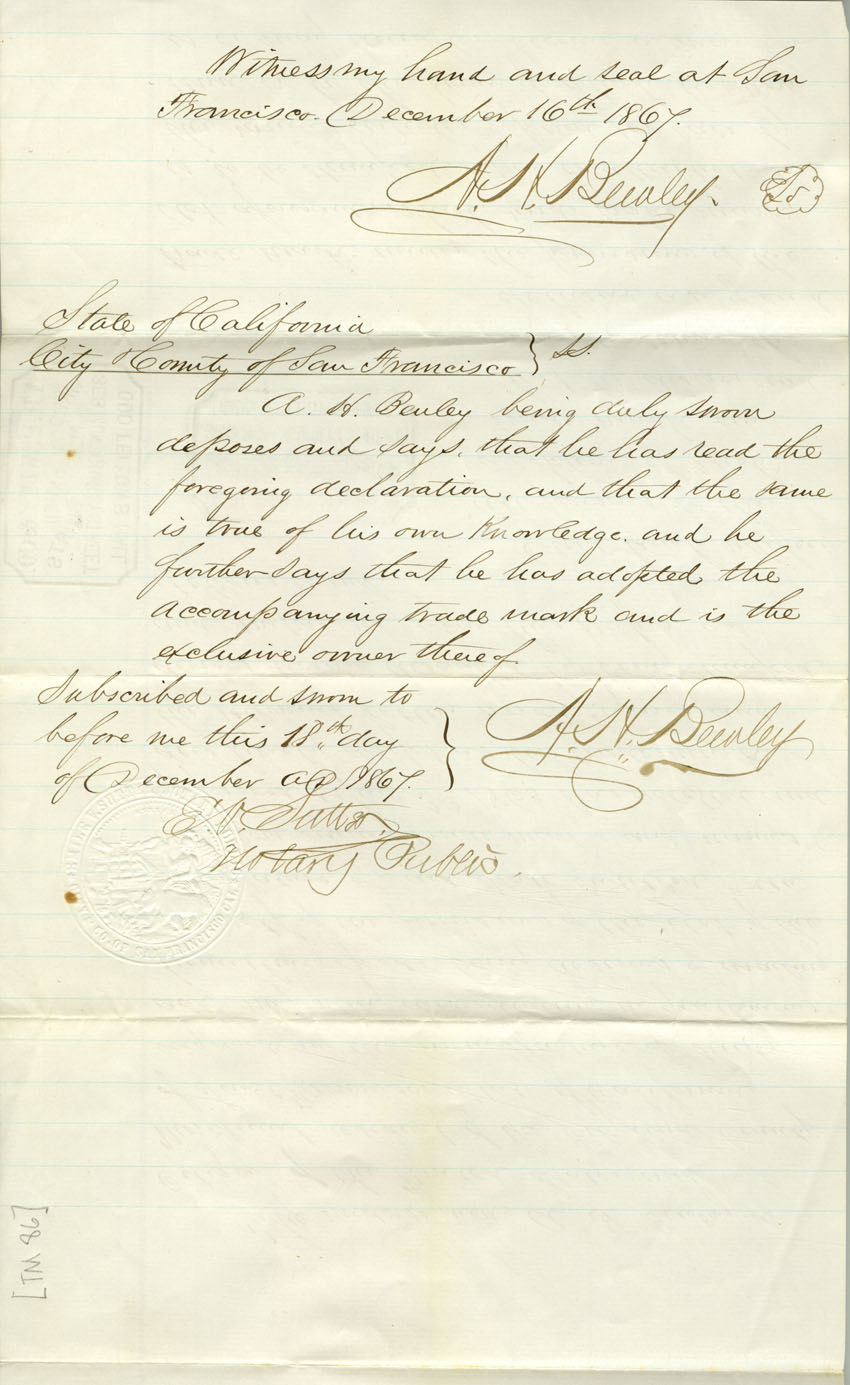 Witness my hand and seal at San
Francisco. December 16th 1867.
A. H. Bewley.
State of California
City & County of San Francisco } ss.
A. H. Bewley being duly sworn
deposes and says, that he has read the
foregoing declaration, and that the same
is true of his own Knowledge. and he
further says that he has adopted the
accompanying trade mark and is the
exclusive owner thereof.
Subscribed and sworn to
before me this 18th day
of December AD 1867.
A. H. Bewley
E. V. Sutter.
Notary Public.
CO. OF SAN FRANCISCO CAL
[TM 86]